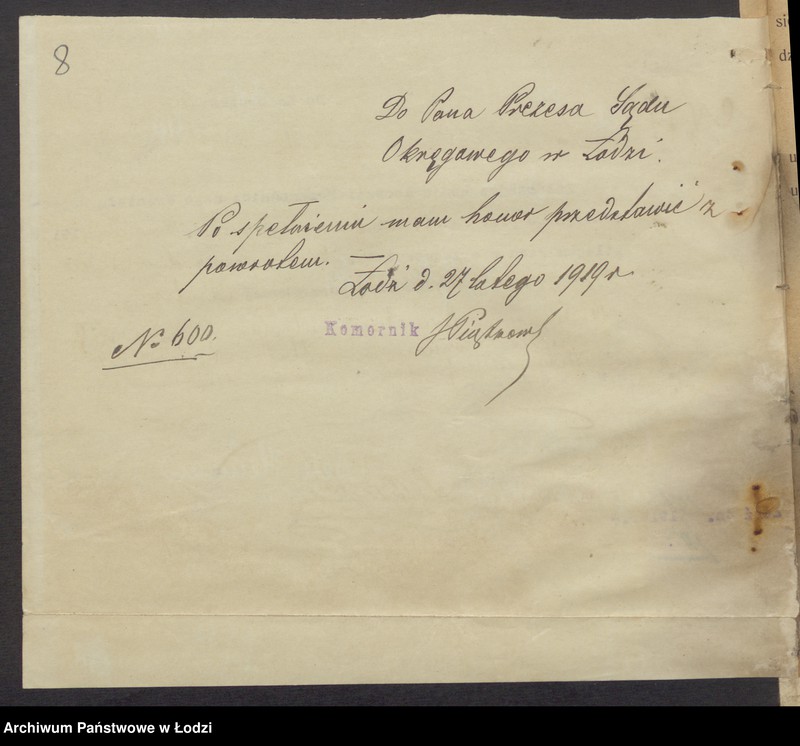 8
Do Pana Prezesa Sądu
Okręgowego w Łodzi.
Po spełnieniu mam honor przedstawić z
powrotem. —
Łódź d. 27 lutego 1919 r
No 600.
Komornik
Archiwum Państwowe w Łodzi